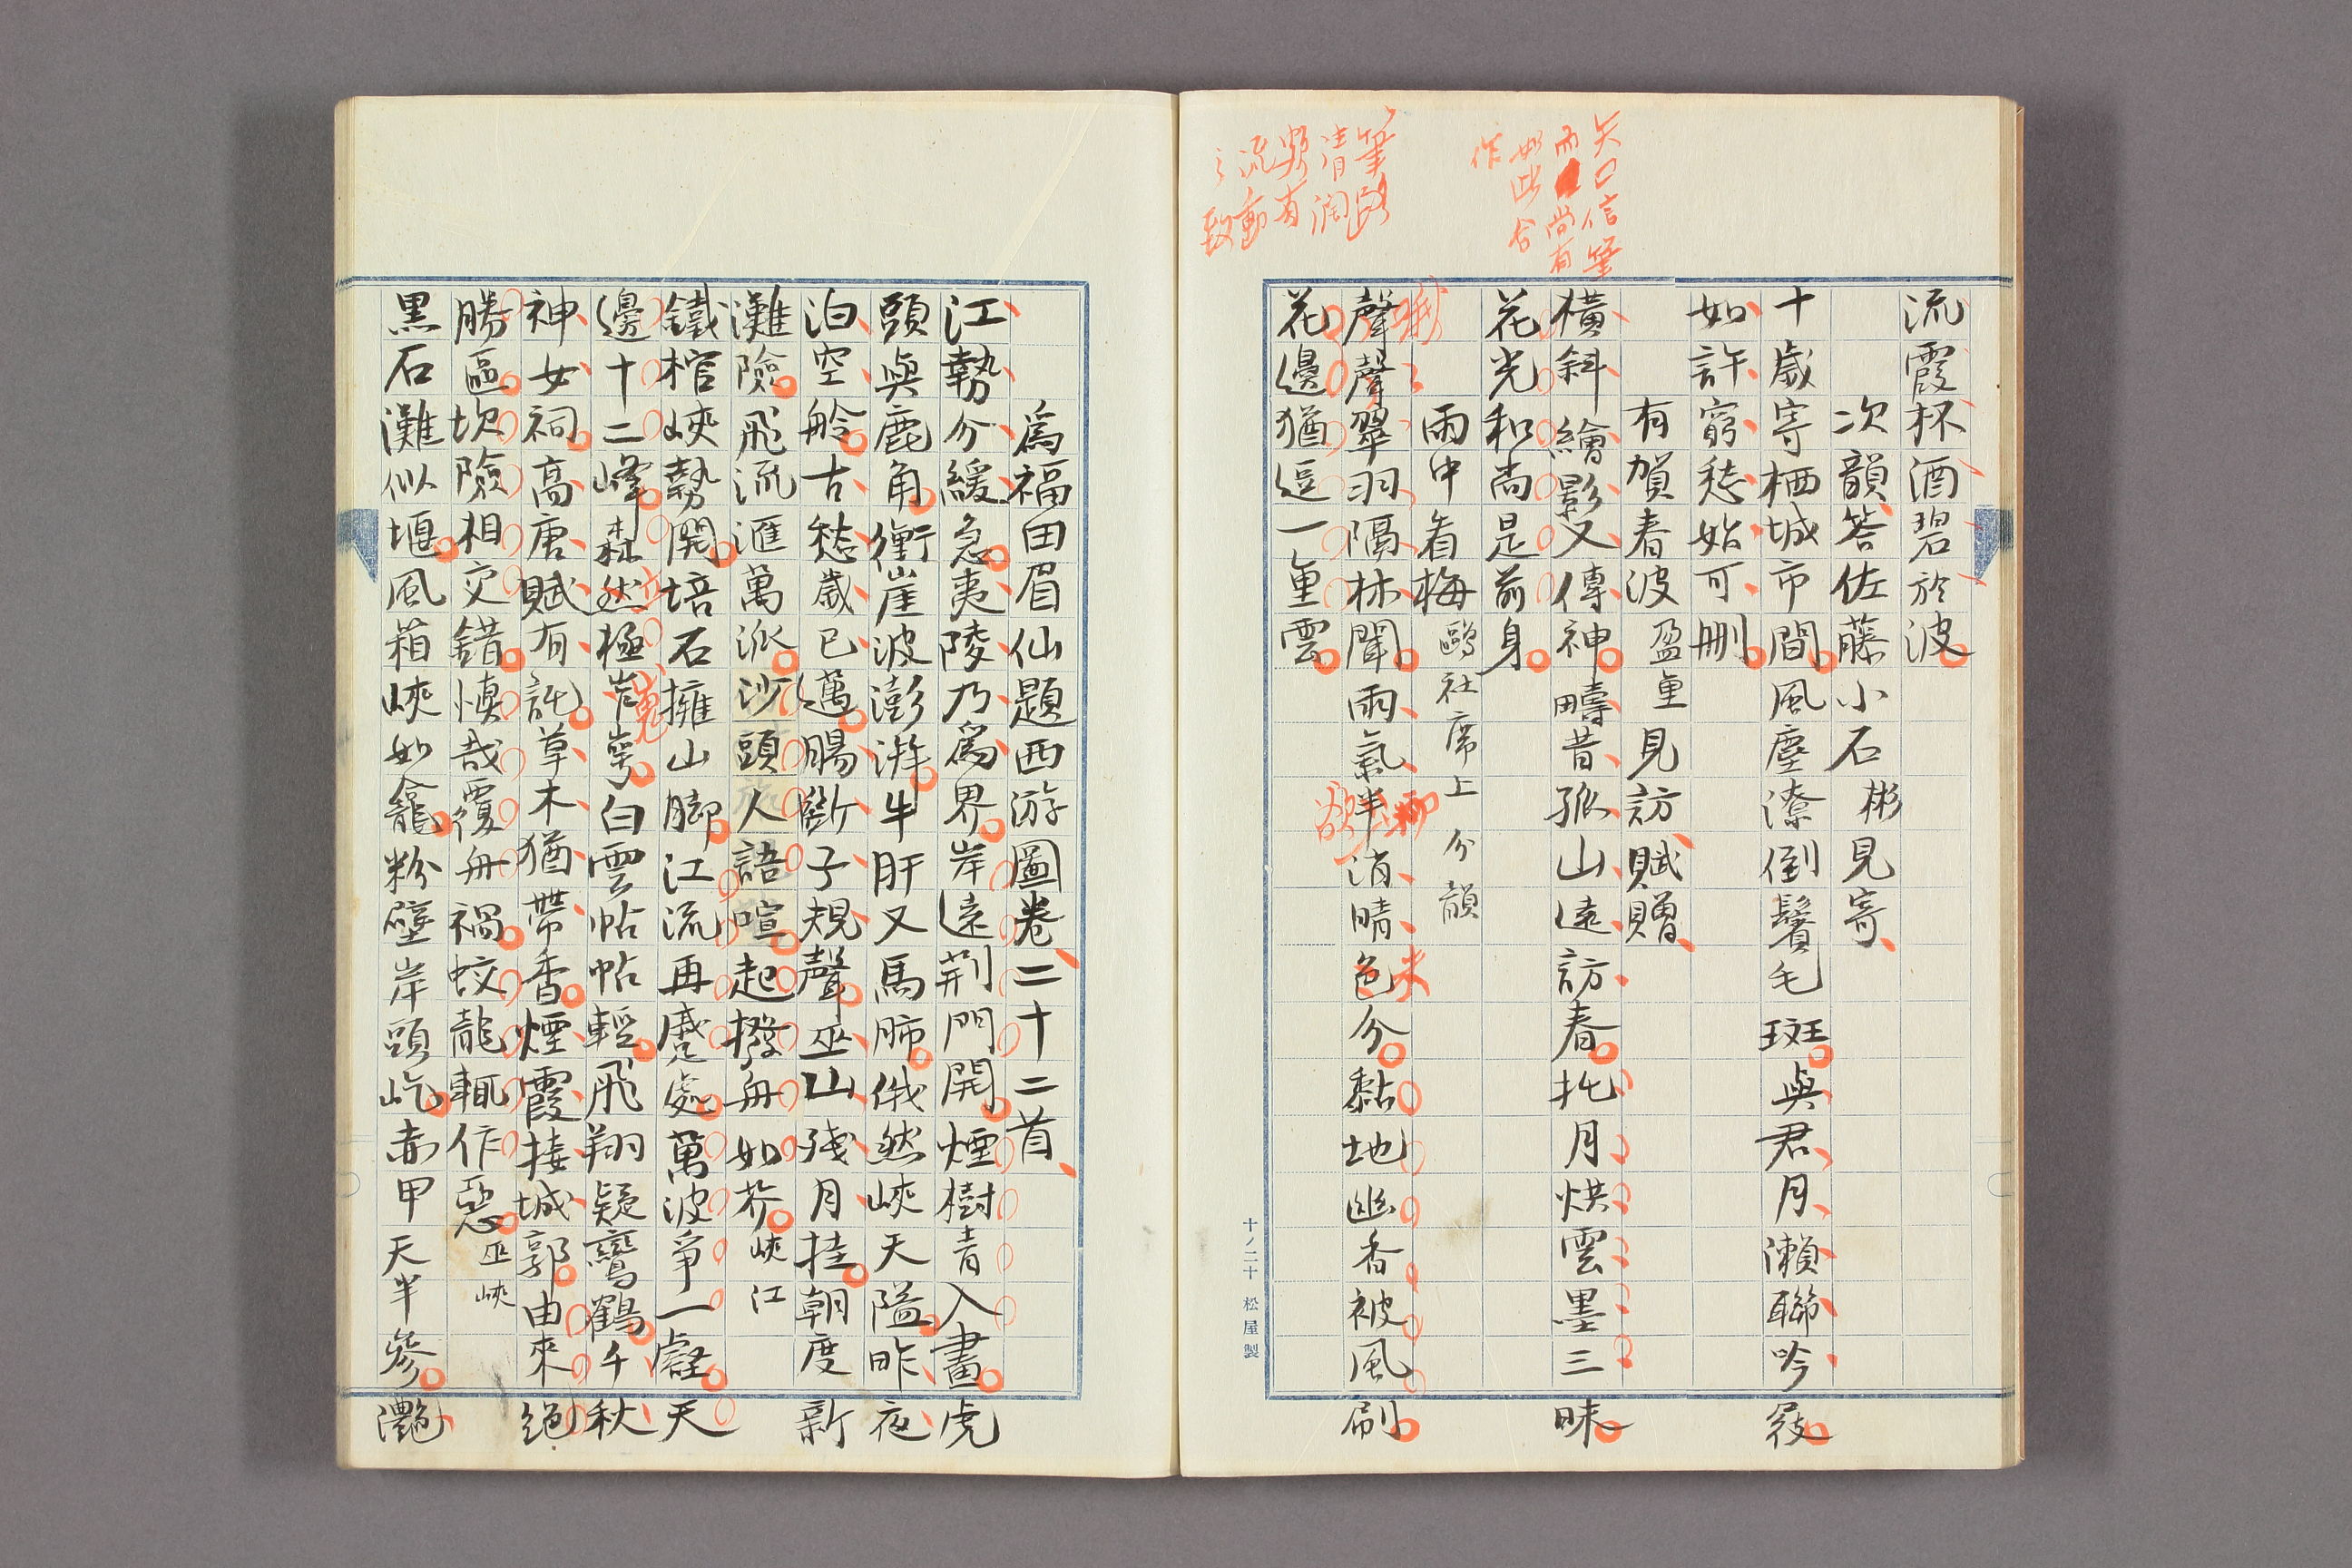 流霞杯酒碧於波
次韻答佐藤小石彬見寄
十歲寄栖城市間風塵潦倒鬢毛斑與君月瀨聯吟後
如許窮愁始可刪
有賀春波盈重見訪賦贈
橫斜繪影又傳神疇昔孤山遠訪春托月烘雲墨三昧
花光和尚是前身
雨中看梅鷗社席上分韻
聲聲翠羽隔林聞雨氣半消晴色分黏地幽香被風刷
花邊猶逗一重雲
矢口信筆
而尚有
如此合
作
筆路
清潤
頗有
流動
之致
哦
欲
未
十ノ二十 松屋製
為福田眉仙題西游圖卷二十二首
江勢分緩急夷陵乃為界岸遠荊門開煙樹青入畫虎
頭與鹿角衝崖波澎湃牛肝又馬肺俄然峽天隘昨夜
泊空舲古愁歲已邁腸斷子規聲巫山殘月挂朝度新
灘險飛流滙萬派沙頭人語喧起撥舟如芥峽江
鐵棺峽勢開培石擁山腳江流再蹙處萬波爭一壑天
邊十二峰森然極岸崿白雲帖帖輕飛翔疑鸞鶴千秋
立
嵬
神女祠高唐賦有託草木猶帶香煙霞接城郭由來絕
勝區坎險相交錯慎哉覆舟禍蛟龍輒作惡巫峽
黑石灘似堰風箱峽如龕粉壁岸頭屹赤甲天半參灩